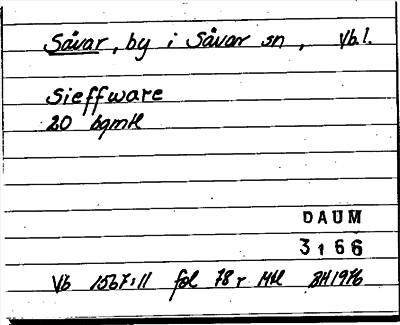 Såvar, by i Såvar sn, Vb.l.
Sieffware
20 bgmtl
DAUM
3166
Vb 1567:11 fol 78 r Mtl BH1976